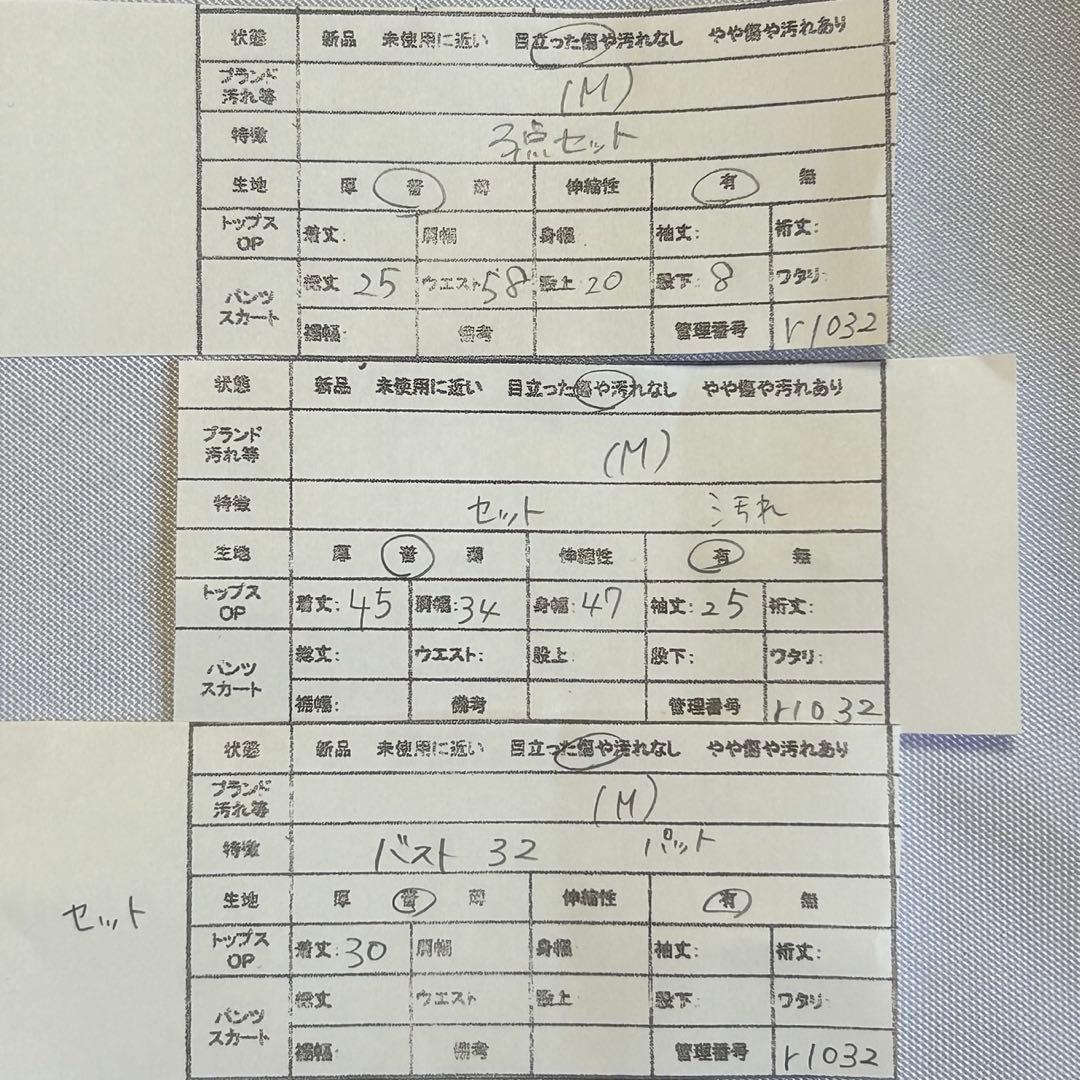 状態 新品 未使用に近い 目立った傷や汚れなし やや傷や汚れあり
ブランド
汚れ等 (M)
特徴 3点セット
生地 厚 普 薄 伸縮性 有 無
トップス
OP 着丈: 肩幅 身幅 袖丈: 裄丈:
パンツ
スカート 総丈 25 ウエスト 58 股上 20 股下: 8 ワタリ:
裾幅: 備考 管理番号 r1032
状態 新品 未使用に近い 目立った傷や汚れなし やや傷や汚れあり
ブランド
汚れ等 (M)
特徴 セット 汚れ
生地 厚 普 薄 伸縮性 有 無
トップス
OP 着丈: 45 肩幅: 34 身幅: 47 袖丈: 25 裄丈:
パンツ
スカート 総丈: ウエスト: 股上: 股下: ワタリ:
裾幅: 備考 管理番号 r1032
状態 新品 未使用に近い 目立った傷や汚れなし やや傷や汚れあり
ブランド
汚れ等 (M)
特徴 バスト 32 パット
セット
生地 厚 普 薄 伸縮性 有 無
トップス
OP 着丈: 30 肩幅 身幅 袖丈: 裄丈:
パンツ
スカート 総丈 ウエスト 股上: 股下: ワタリ:
裾幅: 備考 管理番号 r1032